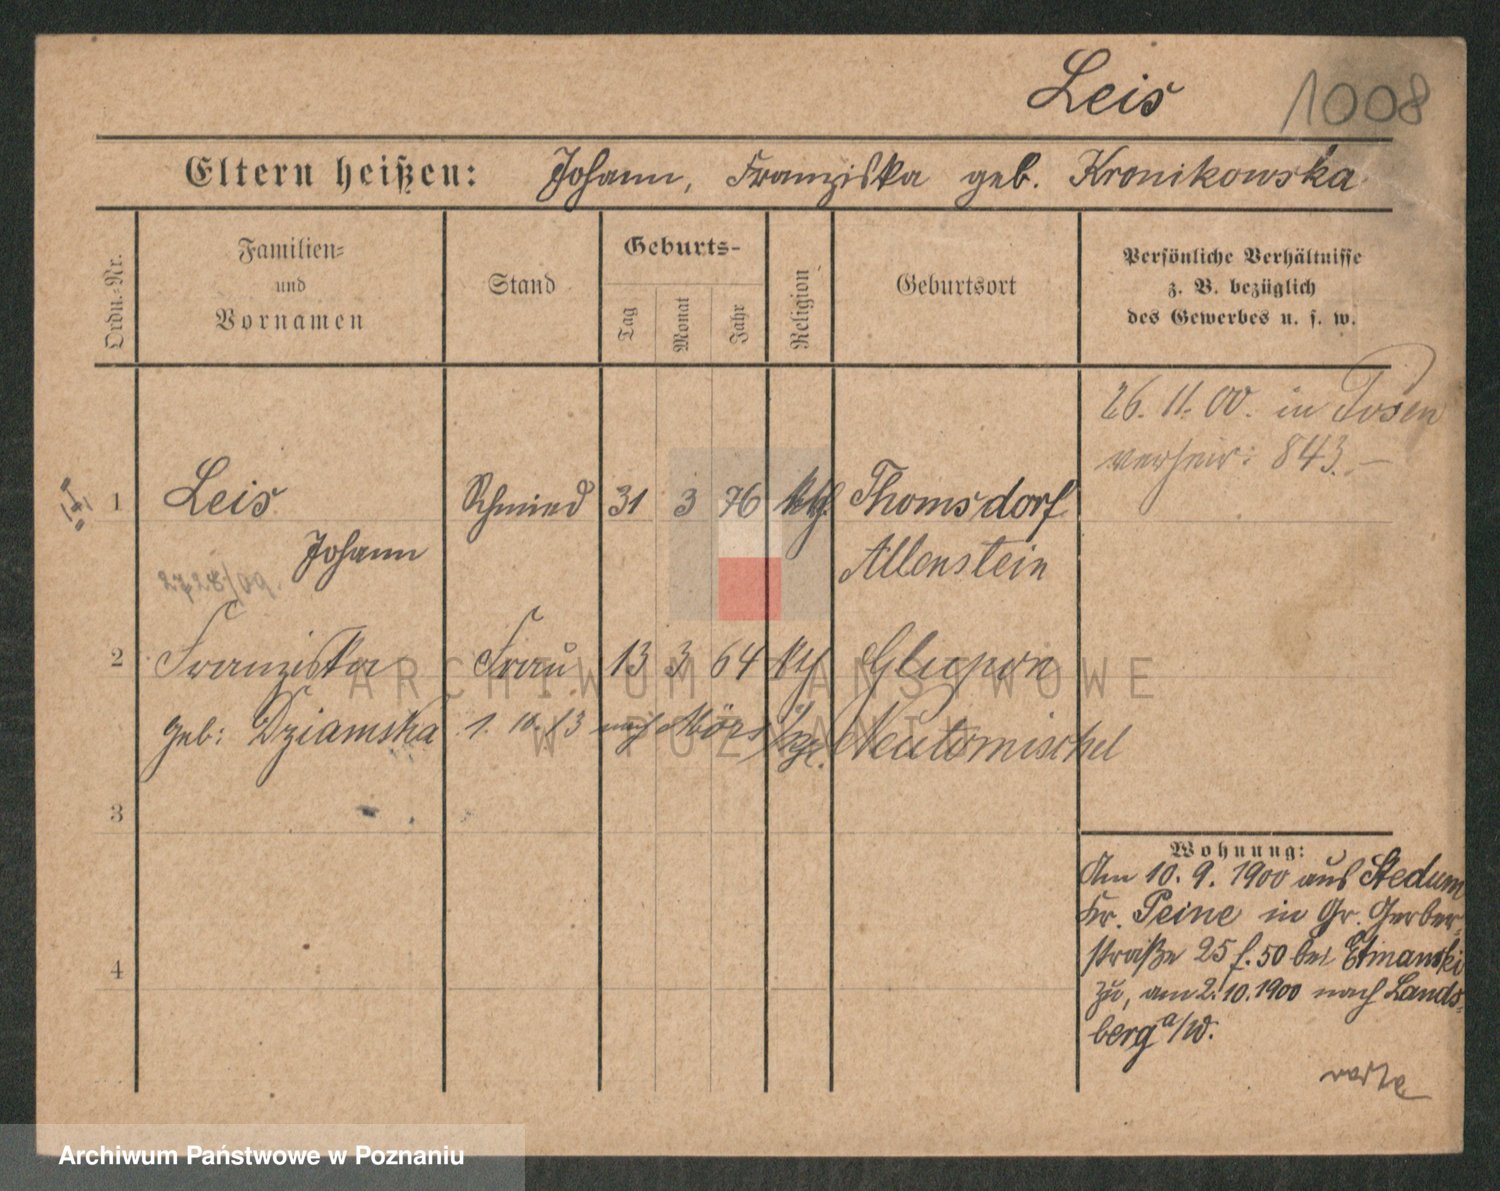 Leis 1008
Eltern heißen: Johann, Franziska geb. Kronikowska
Ordn.-Nr.
Familien-
und
Vornamen
Stand
Geburts-
Tag
Monat
Jahr
Religion
Geburtsort
Persönliche Verhältnisse
z. B. bezüglich
des Gewerbes u. s. w.
26. 11. 00. in Posen
verheir: 843.-
1 Leis Schmied 31 3 76 kth Thomsdorf
Johann Allenstein
2728/09.
2 Franziska Frau 13 3 64 kth Glupon
geb: Dziamska 1. 10. 13 nach Mörs Neutomischel
3
4
Wohnung:
Am 10. 9. 1900 aus Stedum
Kr. Peine in Gr. Gerber-
straße 25 f. 50 bei Etmanski
zu, am 2. 10. 1900 nach Lands-
berg a/W.
ARCHIWUM PAŃSTWOWE
W POZNANIU
Archiwum Państwowe w Poznaniu